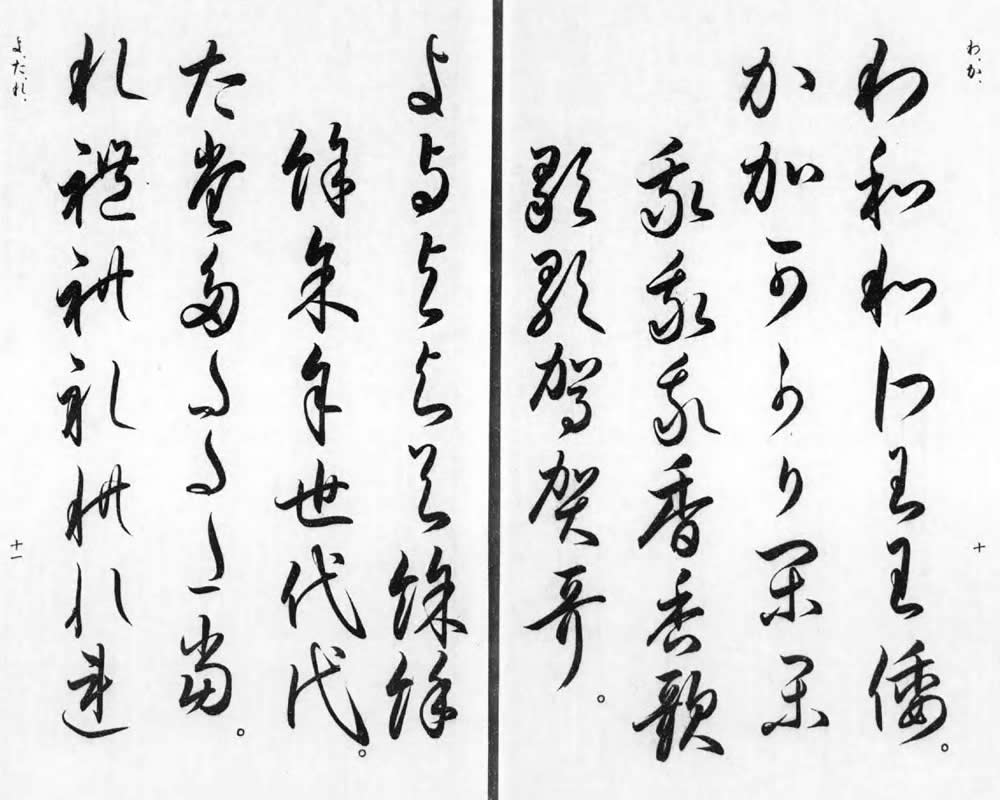 わ、か、
わ和和わ王王倭。
か加可可可閑閑
我我我香香歌
歟歟駕賀哥。
十
よ与与与与餘餘
餘余余世代代。
た堂多多多多當。
れ禮礼礼れ連
よ、た、れ、
十一